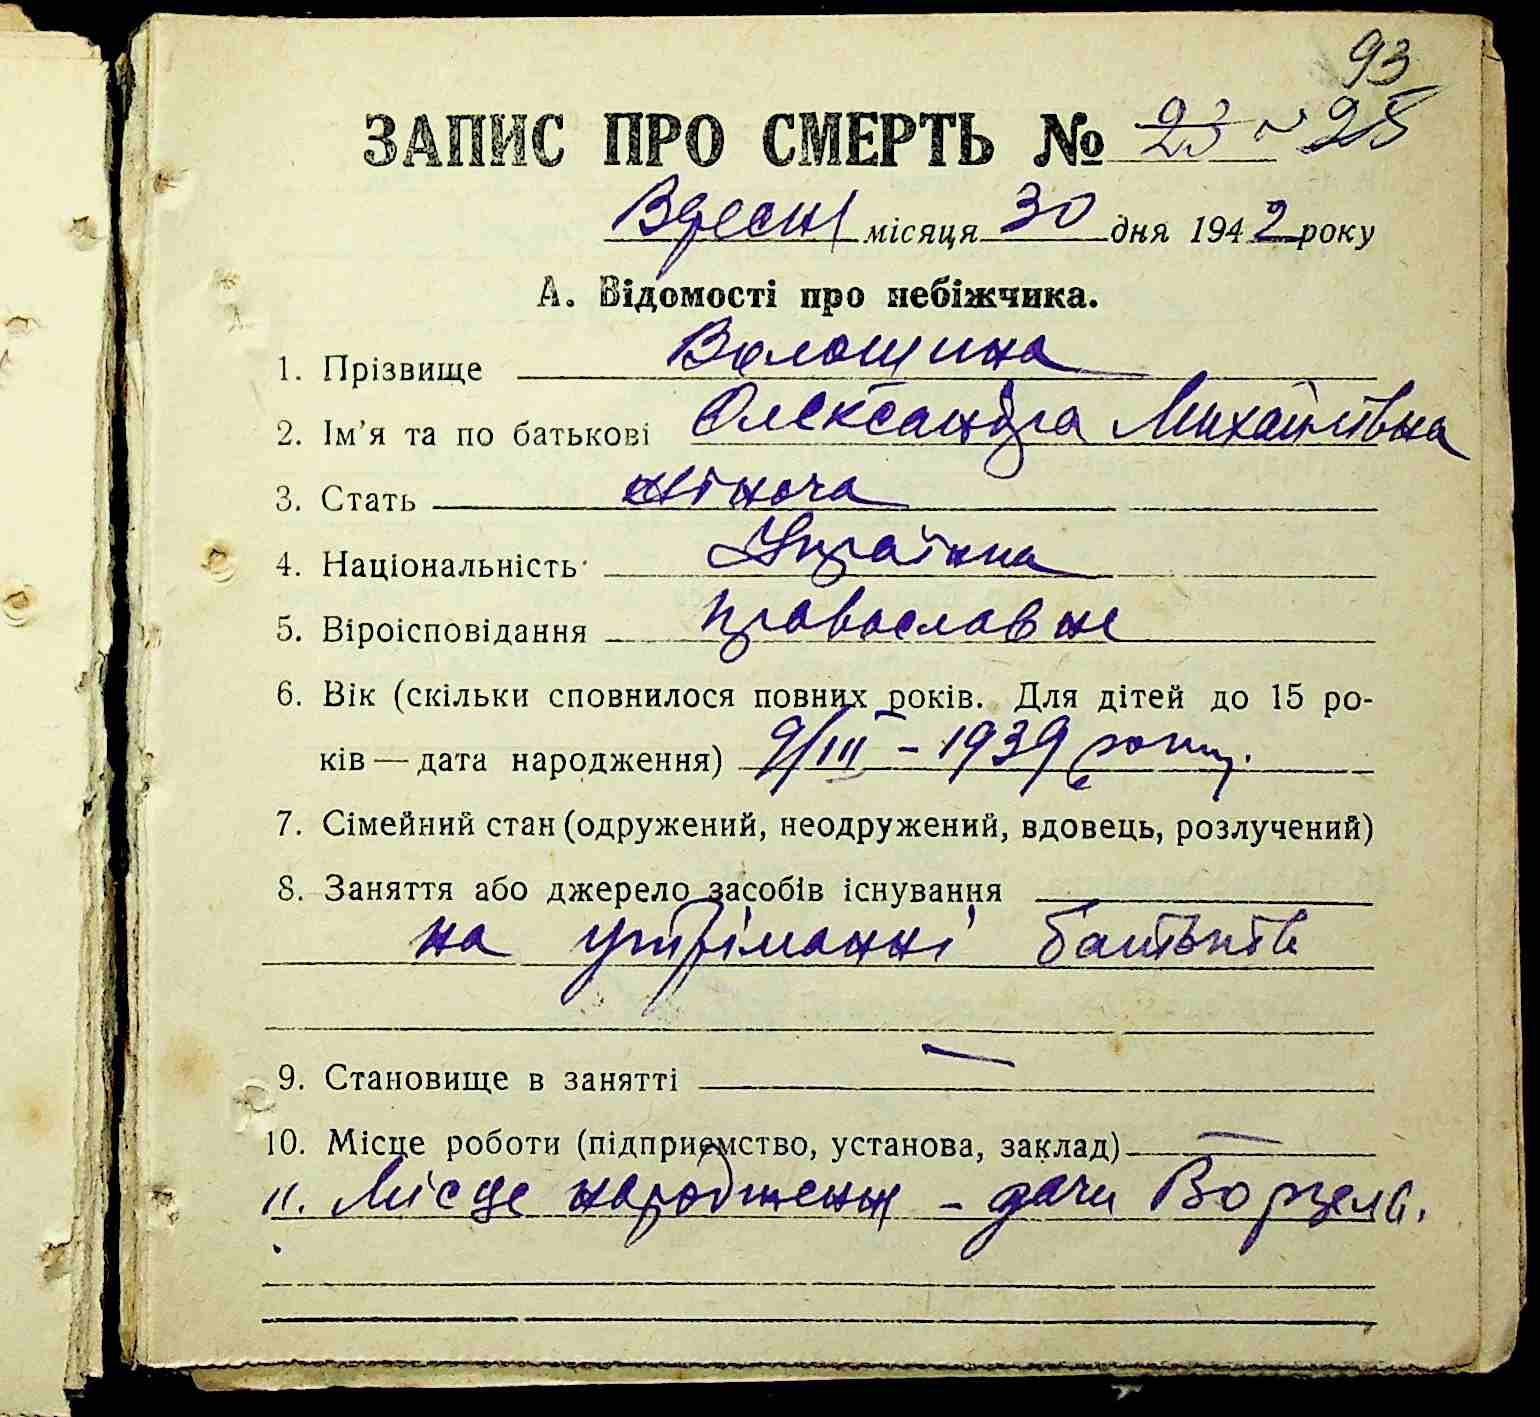 93
ЗАПИС ПРО СМЕРТЬ № 23 ~ 28
Вресня місяця 30 дня 1942 року
А. Відомості про небіжчика.
1. Прізвище Волощина
2. Ім’я та по батькові Олександра Михайлівна
3. Стать жіноча
4. Національність Українка
5. Віроісповідання православне
6. Вік (скільки сповнилося повних років. Для дітей до 15 ро-
ків — дата народження) 9/III – 1939 року.
7. Сімейний стан (одружений, неодружений, вдовець, розлучений)
8. Заняття або джерело засобів існування
на утріманні батьків
9. Становище в занятті —
10. Місце роботи (підприємство, установа, заклад) —
11. Місце народження – дачи Ворзель.